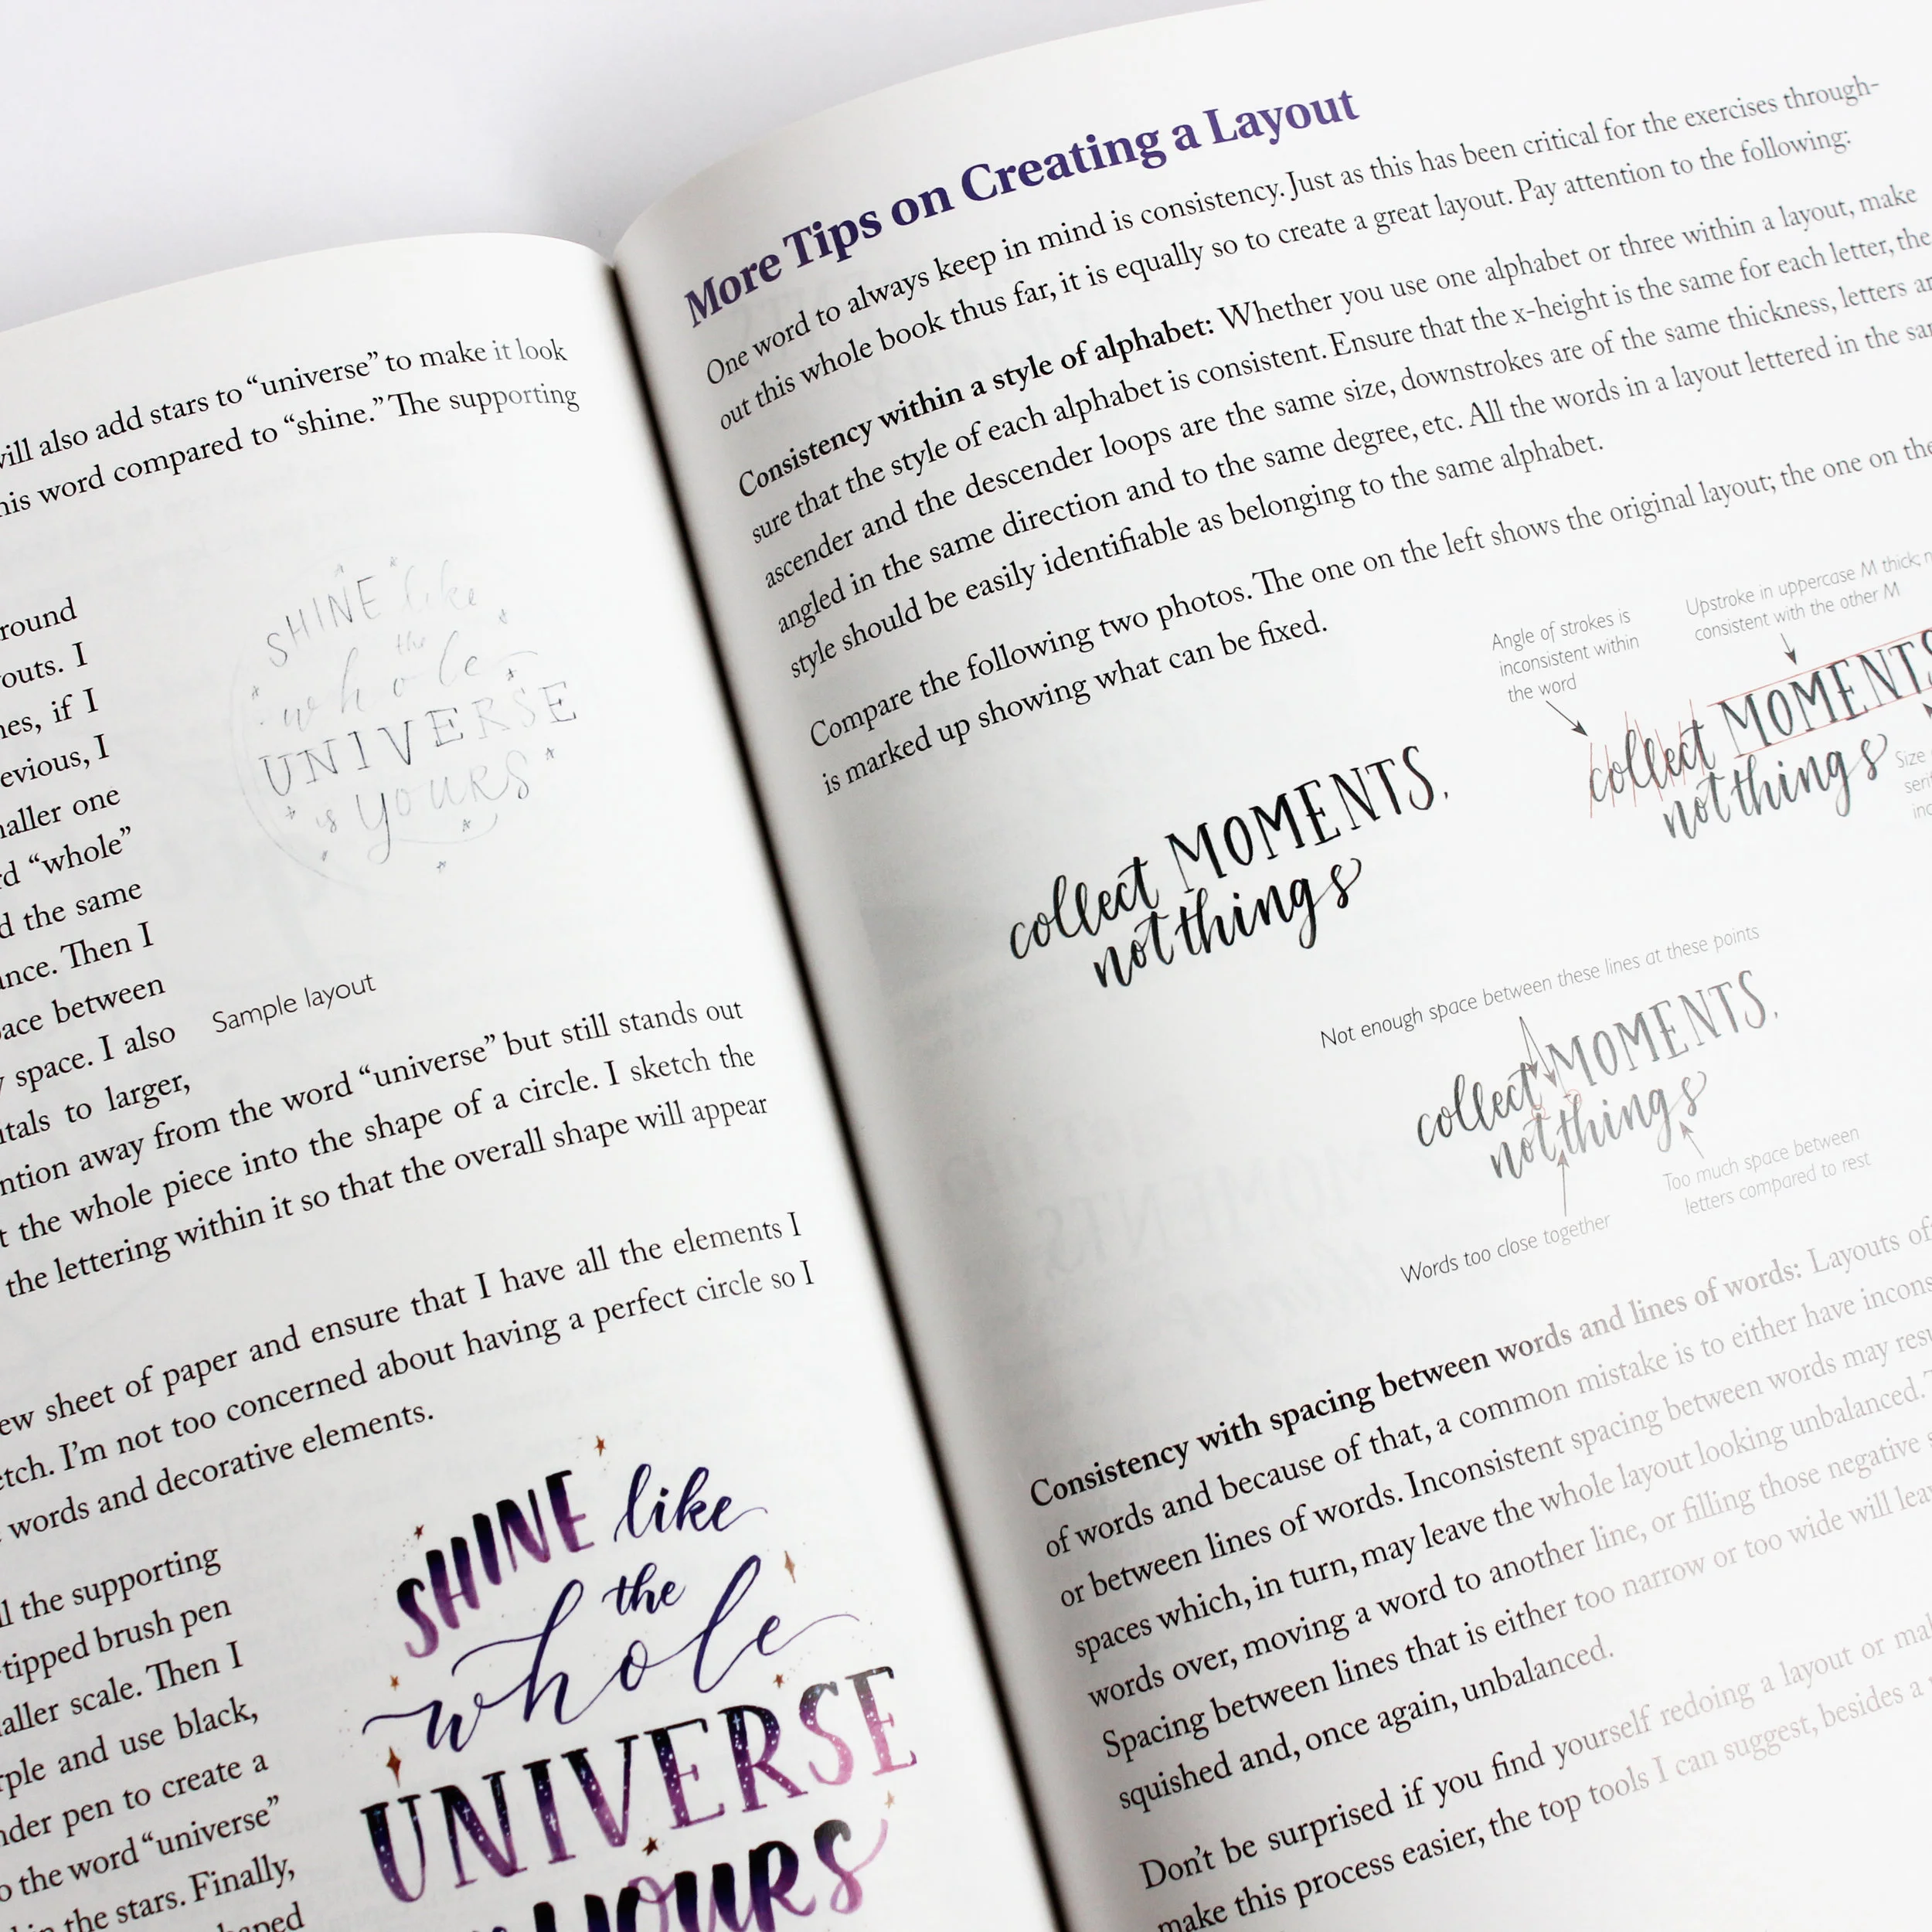 will also add stars to “universe” to make it look
his word compared to “shine.” The supporting
round
outs. I
if I
evious, I
maller one
“whole”
d the same
ance. Then I
ace between
space. I also
to larger,
SHINE like
the
whole
UNIVERSE
is YOURS
Sample layout
away from the word “universe” but still stands out
the whole piece into the shape of a circle. I sketch the
the lettering within it so that the overall shape will appear
ew sheet of paper and ensure that I have all the elements I
etch. I’m not too concerned about having a perfect circle so I
words and decorative elements.
the supporting
-tipped brush pen
aller scale. Then I
rple and use black,
nder pen to create a
o the word “universe”
in the stars. Finally,
SHINE like
the
whole
UNIVERSE
YOURS
More Tips on Creating a Layout
One word to always keep in mind is consistency. Just as this has been critical for the exercises through-
out this whole book thus far, it is equally so to create a great layout. Pay attention to the following:
Consistency within a style of alphabet: Whether you use one alphabet or three within a layout, make
sure that the style of each alphabet is consistent. Ensure that the x-height is the same for each letter, the
ascender and the descender loops are the same size, downstrokes are of the same thickness, letters ar
angled in the same direction and to the same degree, etc. All the words in a layout lettered in the sa
style should be easily identifiable as belonging to the same alphabet.
Compare the following two photos. The one on the left shows the original layout; the one on the
is marked up showing what can be fixed.
collect MOMENTS,
not things
Angle of strokes is
inconsistent within
the word
Upstroke in uppercase M thick;
consistent with the other M
collect MOMENTS
not things
Size
seri
inc
Not enough space between these lines at these points
collect MOMENTS,
not things
Too much space between
letters compared to rest
Words too close together
Consistency with spacing between words and lines of words: Layouts of
of words and because of that, a common mistake is to either have incons
or between lines of words. Inconsistent spacing between words may resu
spaces which, in turn, may leave the whole layout looking unbalanced.
words over, moving a word to another line, or filling those negative s
Spacing between lines that is either too narrow or too wide will leav
squished and, once again, unbalanced.
Don’t be surprised if you find yourself redoing a layout or mak
make this process easier, the top tools I can suggest, besides a